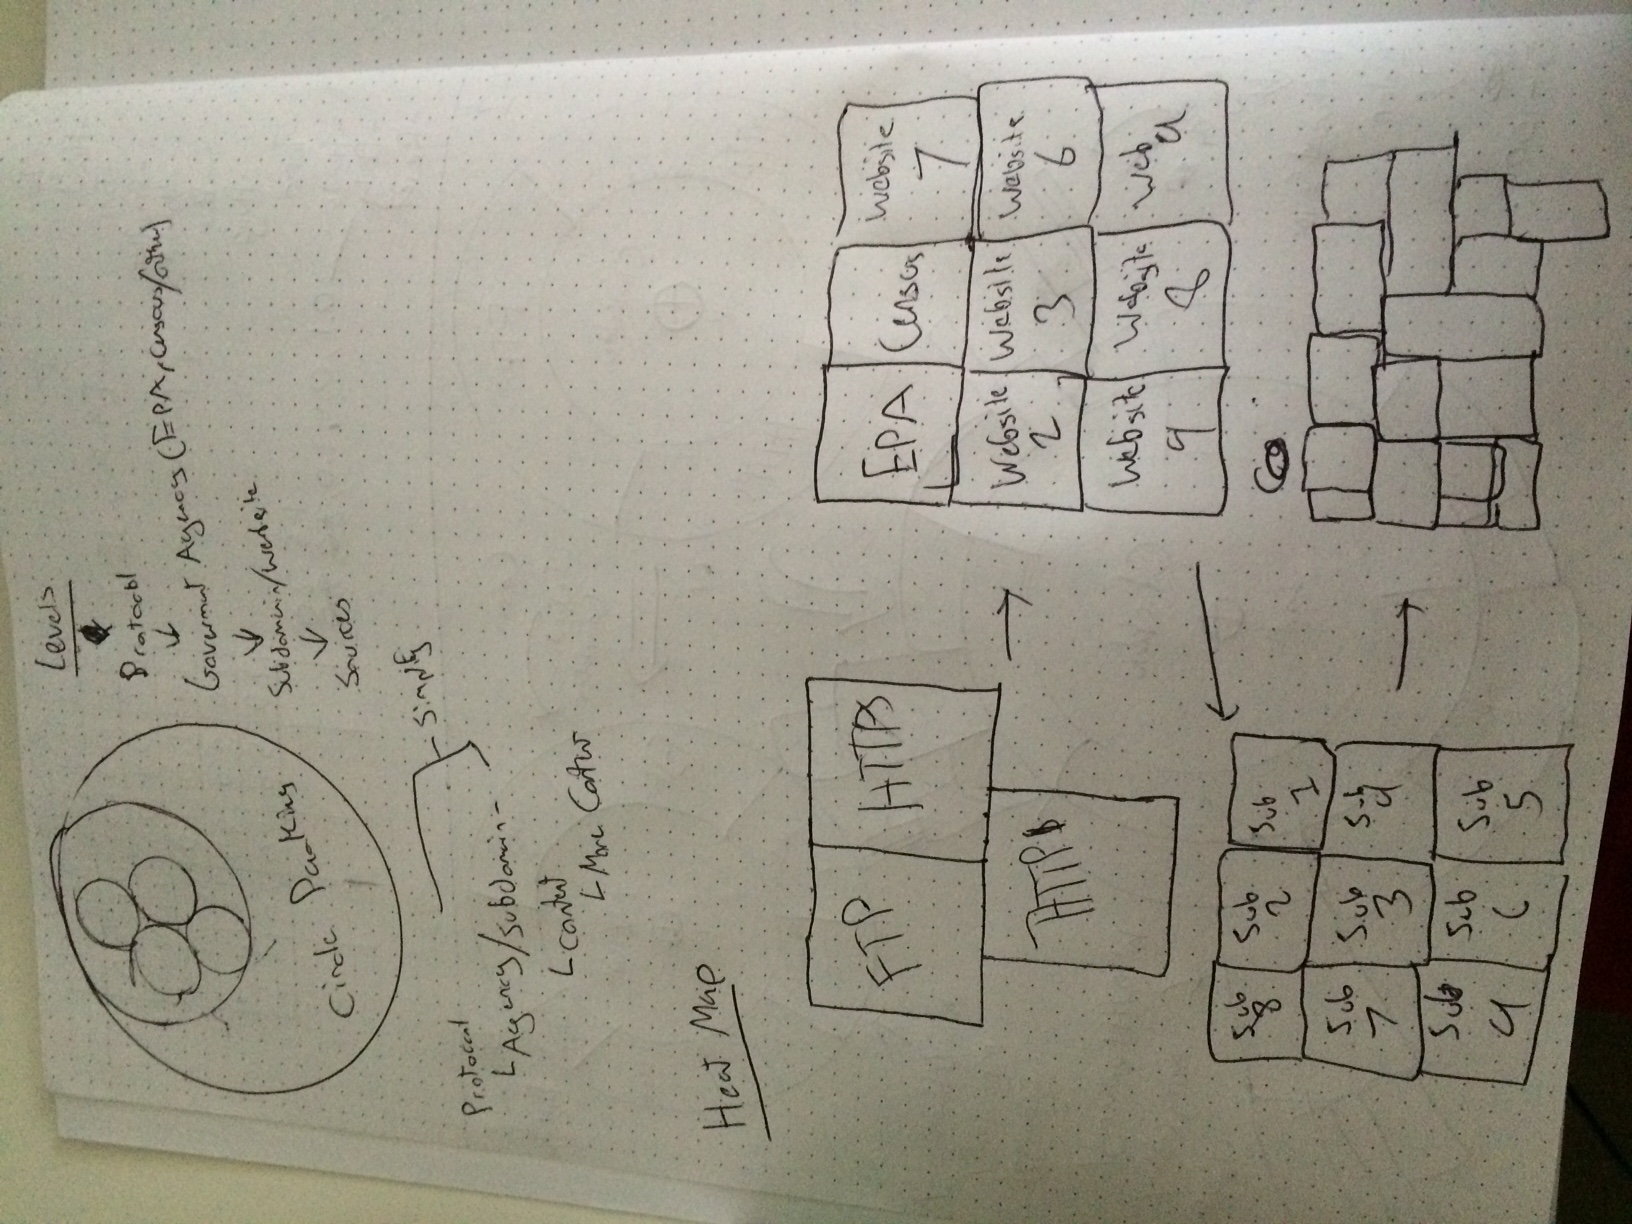 Levels
Protocol
Goverment Agency (EPA, Census/other)
Subdomain/Website
Sources
Circle Packing
Simplify
Protocal
Agency/Subdomain
Content
More Content
Heat Map
FTP
HTTPS
HTTP
EPA
Census
Website
7
Website
2
Website
3
Website
6
Website
9
Website
8
Web
9
Sub
8
Sub
2
Sub
1
Sub
7
Sub
3
Sub
4
Sub
9
Sub
6
Sub
5